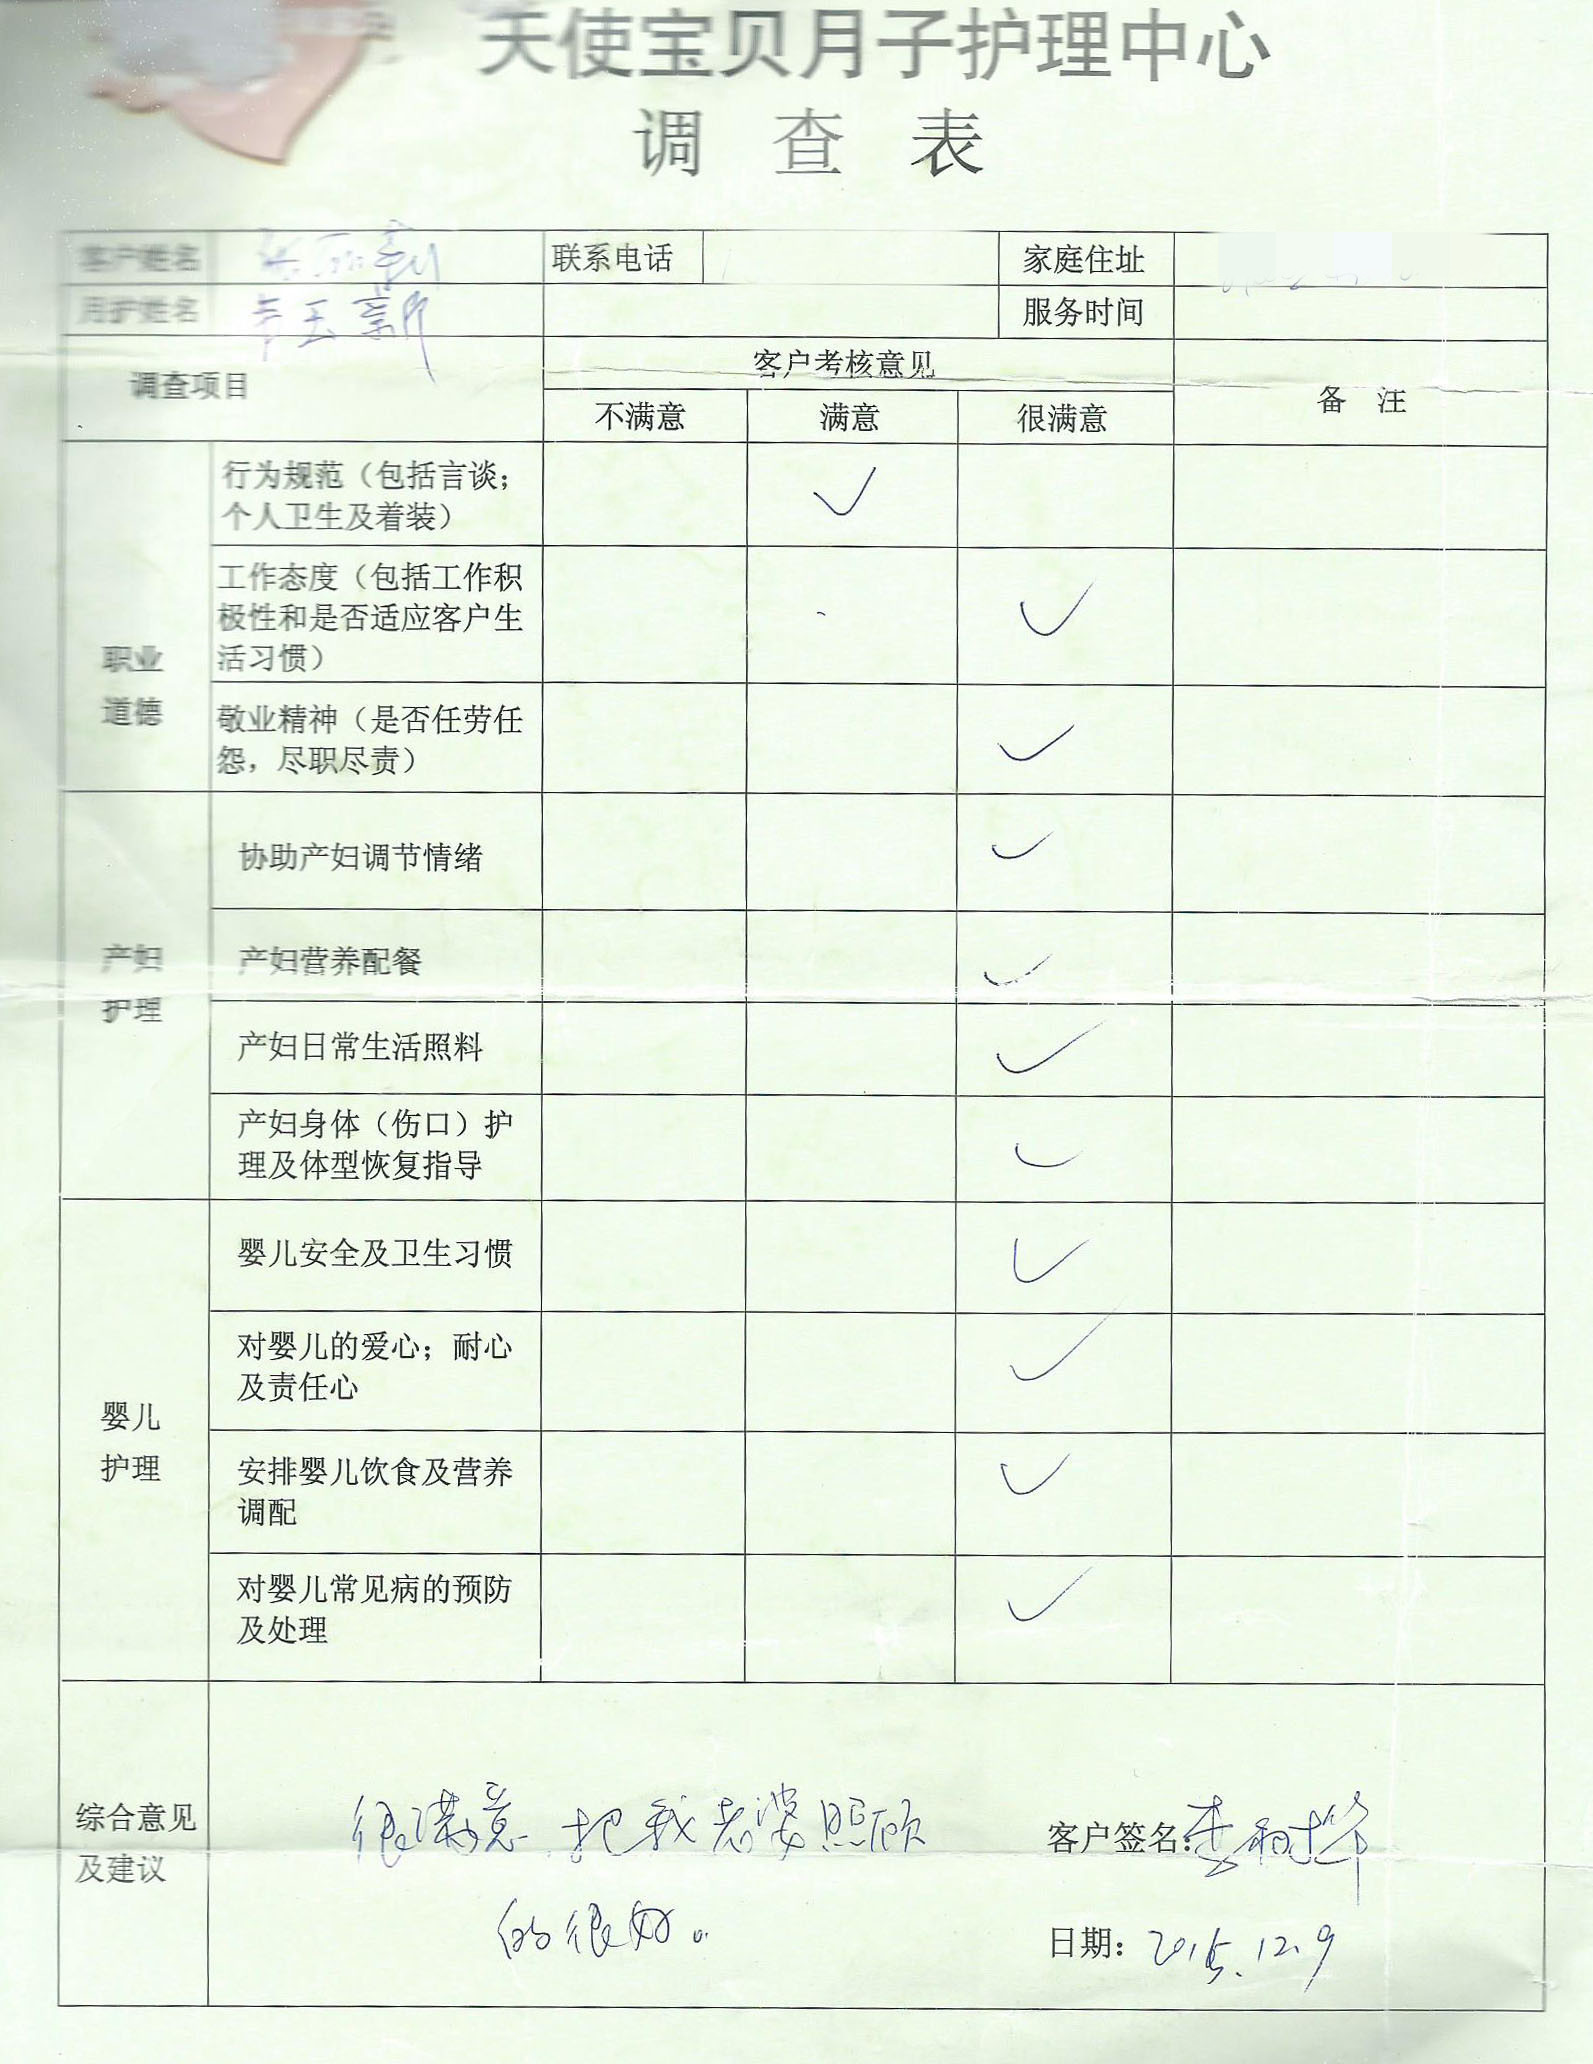 天使宝贝月子护理中心
调 查 表
客户姓名 联系电话 家庭住址
月护姓名 服务时间
调查项目 客户考核意见 备 注
不满意 满意 很满意
职业
道德
行为规范（包括言谈；
个人卫生及着装） ✓
工作态度（包括工作积
极性和是否适应客户生
活习惯） ✓
敬业精神（是否任劳任
怨，尽职尽责） ✓
产妇
护理
协助产妇调节情绪 ✓
产妇营养配餐 ✓
产妇日常生活照料 ✓
产妇身体（伤口）护
理及体型恢复指导 ✓
婴儿
护理
婴儿安全及卫生习惯 ✓
对婴儿的爱心；耐心
及责任心 ✓
安排婴儿饮食及营养
调配 ✓
对婴儿常见病的预防
及处理 ✓
综合意见
及建议
很满意 把我老婆照顾
的很好。
客户签名：
日期：2015.12.9